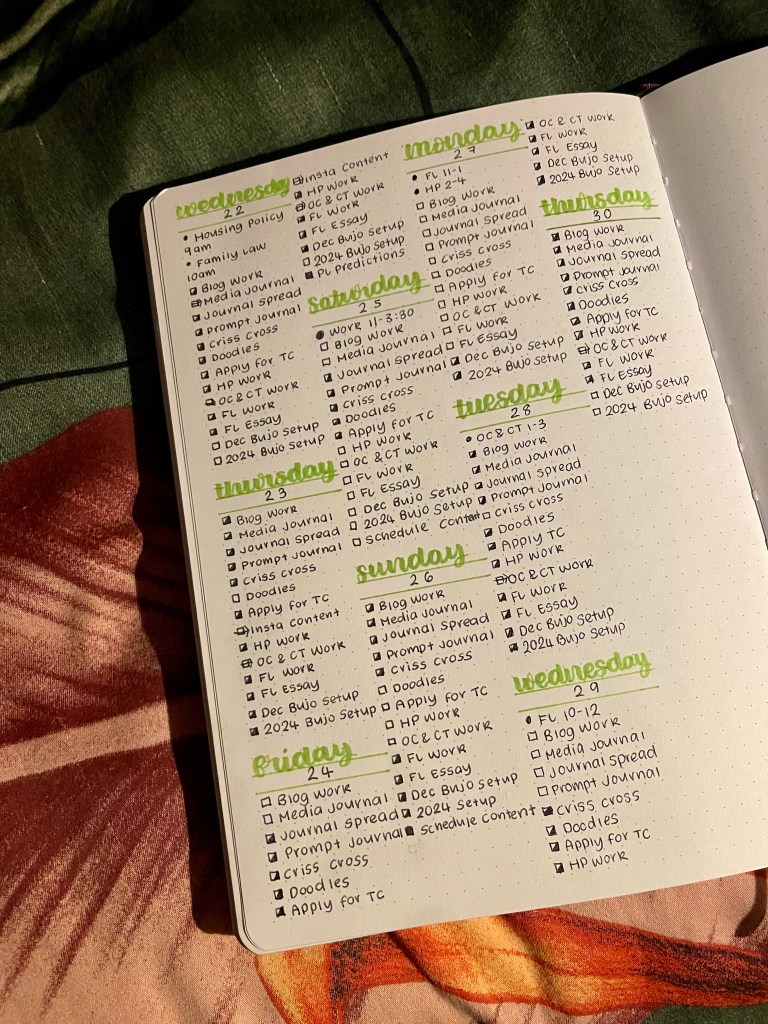 wednesday
22
• Housing policy
9am
• Family Law
10am
Blog work
Media Journal
Journal Spread
Prompt Journal
Criss Cross
Doodles
Apply for TC
HP work
OC & CT work
FL work
FL Essay
Dec Bujo Setup
2024 Bujo Setup
thursday
23
Blog work
Media Journal
Journal Spread
Prompt Journal
Criss cross
Doodles
Apply for TC
Insta content
HP work
OC & CT work
FL work
FL Essay
Dec Bujo Setup
2024 Bujo Setup
friday
24
Blog work
Media Journal
Journal Spread
Prompt Journal
Criss Cross
Doodles
Apply for TC
Insta content
HP work
OC & CT work
FL work
FL Essay
Dec Bujo Setup
2024 Bujo Setup
PL Predictions
saturday
25
• work 11-3:30
Blog work
Media Journal
Journal Spread
Prompt Journal
Criss cross
Doodles
Apply for TC
HP work
OC & CT work
FL work
FL Essay
Dec Bujo Setup
2024 Bujo Setup
Schedule Content
sunday
26
Blog work
Media Journal
Journal Spread
Prompt Journal
Criss cross
Doodles
Apply for TC
HP work
OC & CT work
FL work
FL Essay
Dec Bujo Setup
2024 Setup
Schedule Content
monday
27
• FL 11-1
• HP 2-4
Blog work
Media Journal
Journal Spread
Prompt Journal
Criss cross
Doodles
Apply for TC
HP work
OC & CT work
FL work
FL Essay
Dec Bujo Setup
2024 Bujo Setup
tuesday
28
• OC & CT 1-3
Blog work
Media Journal
Journal Spread
Prompt Journal
Criss cross
Doodles
Apply TC
HP work
OC & CT work
FL work
FL Essay
Dec Bujo Setup
2024 Bujo Setup
wednesday
29
• FL 10-12
Blog work
Media Journal
Journal Spread
Prompt Journal
Criss cross
Doodles
Apply for TC
HP work
OC & CT work
FL work
FL Essay
Dec Bujo Setup
2024 Bujo Setup
thursday
30
Blog work
Media Journal
Journal Spread
Prompt Journal
Criss cross
Doodles
Apply for TC
HP work
OC & CT work
FL work
FL Essay
Dec Bujo Setup
2024 Bujo Setup